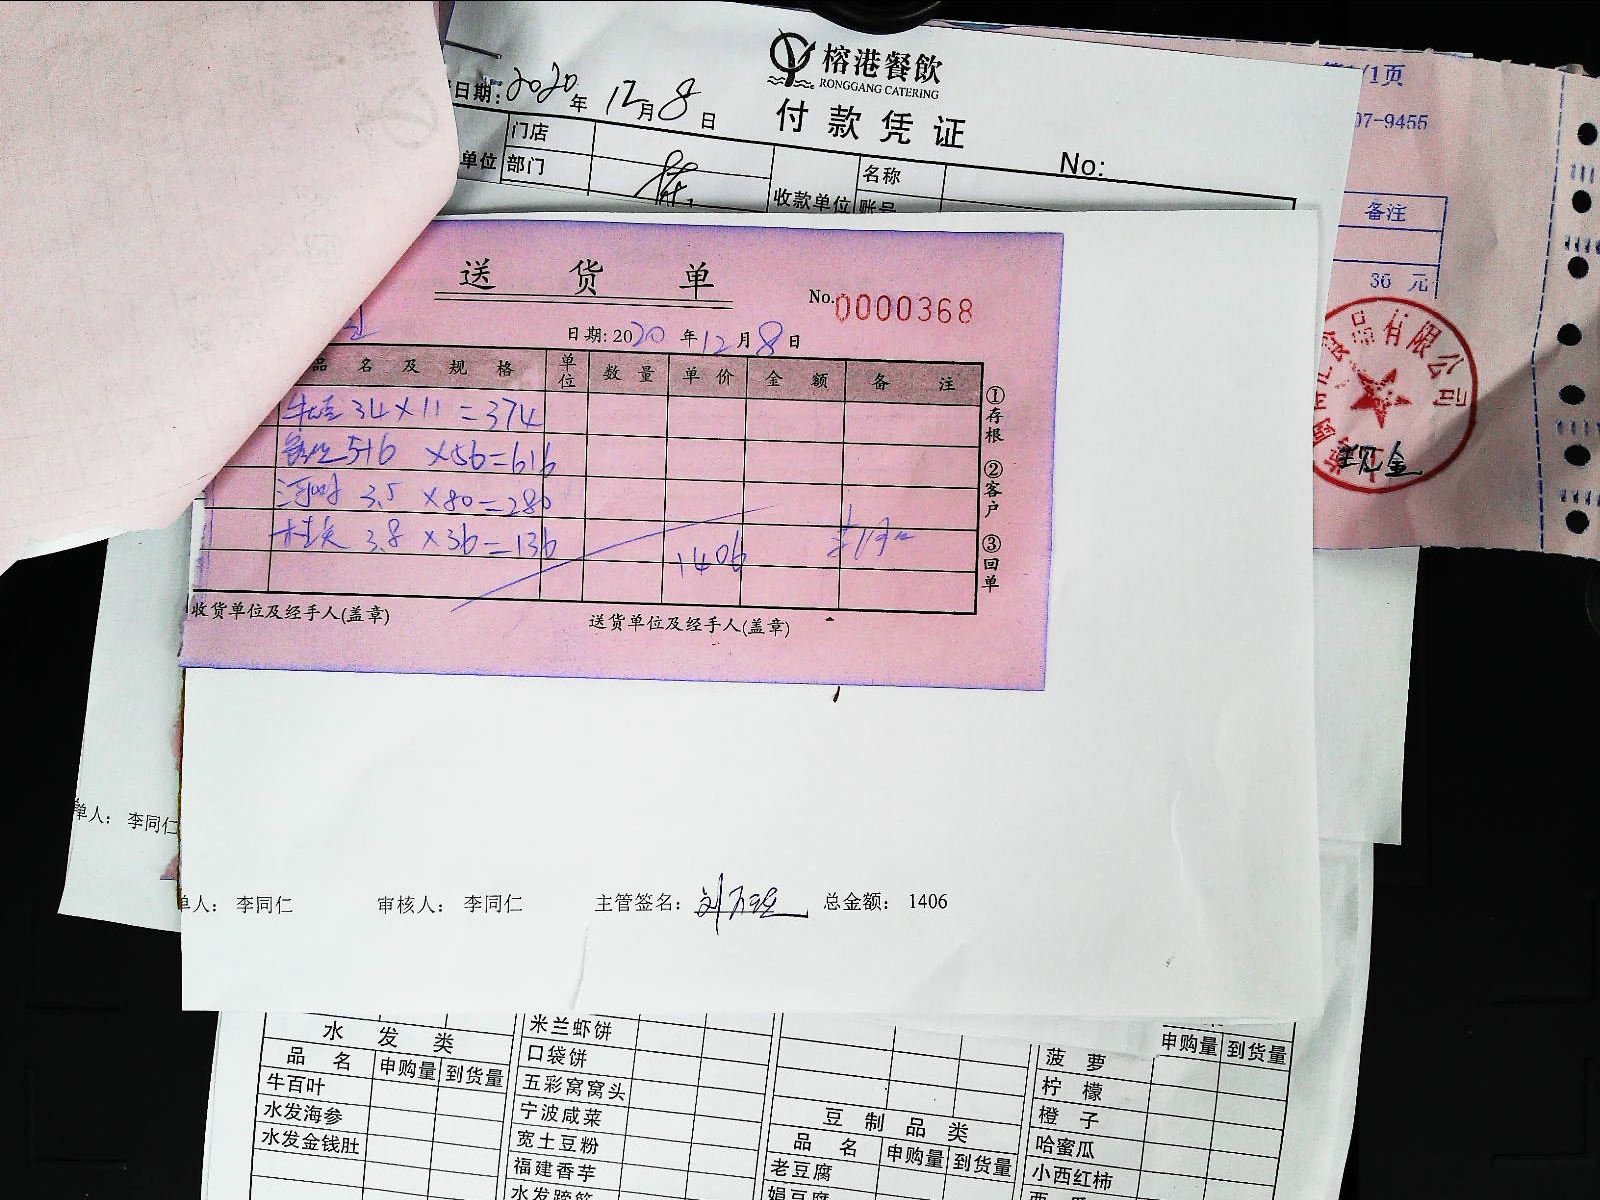 榕港餐飲
RONGGANG CATERING
日期: 2020年 12月 8日
付款凭证
No:
单位
门店
部门
收款单位
名称
账号
/1页
07-9455
备注
36 元
食品有限公司
现金
送货单
No. 0000368
日期: 2020 年 12 月 8 日
品名及规格 单位 数量 单价 金额 备注
34×11=374
516 ×56=616
3.5 ×80=280
3.8 ×36=136
1406
①存根 ②客户 ③回单
收货单位及经手人(盖章) 送货单位及经手人(盖章)
单人: 李同仁
单人: 李同仁 审核人: 李同仁 主管签名: 总金额: 1406
水发类
品名 申购量 到货量
牛百叶
水发海参
水发金钱肚
米兰虾饼
口袋饼
五彩窝窝头
宁波咸菜
宽土豆粉
福建香芋
豆制品类
品名 申购量 到货量
老豆腐
申购量 到货量
菠萝
柠檬
橙子
哈蜜瓜
小西红柿